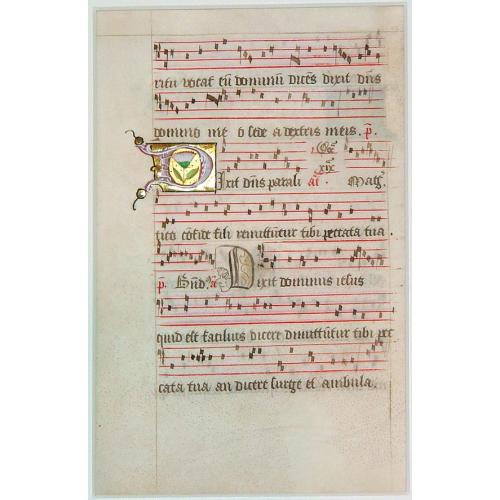 ritu vocat eū dominū dicēs dixit dn̄s
domino me o sede a dextris meis. p.
Dixit dn̄s parali ā. xix Mag̃.
tico cōfide fili remittūtur tibi peccata tua.
p. Bn̄d. ā Dixit dominus iesus
quid est facilius dicere dimittūtur tibi pec
cata tua an dicere surge et ambula.